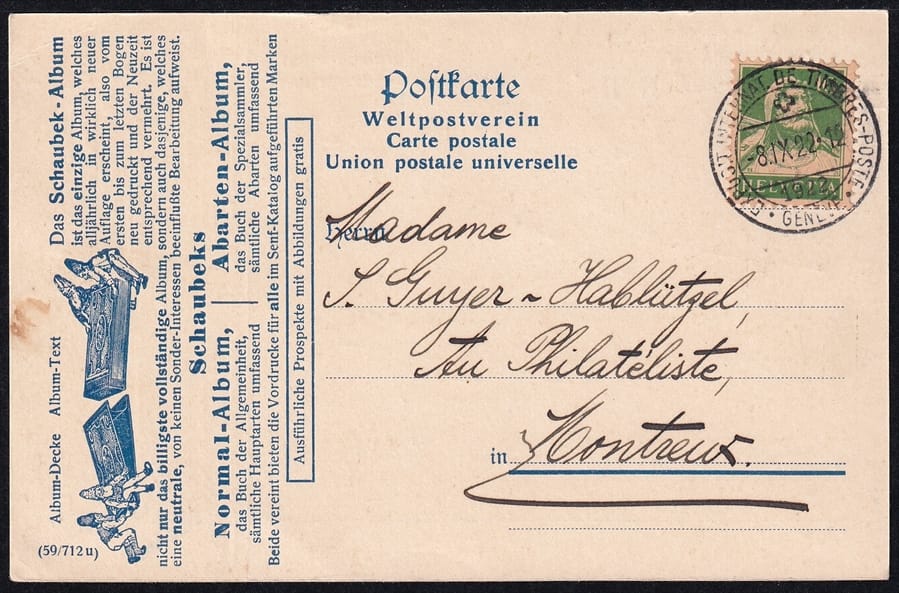 Das Schaubek-Album
ist das einzige Album, welches
alljährlich in wirklich neuer
Auflage erscheint, also vom
ersten bis zum letzten Bogen
neu gedruckt und der Neuzeit
entsprechend vermehrt. Es ist
nicht nur das billigste vollständige Album, sondern auch dasjenige, welches
eine neutrale, von keinen Sonder-Interessen beeinflußte Bearbeitung aufweist.
Album-Decke Album-Text
Schaubeks
Normal-Album,
das Buch der Allgemeinheit,
sämtliche Hauptarten umfassend
Abarten-Album,
das Buch der Spezialsammler,
sämtliche Abarten umfassend
Beide vereint bieten die Vordrucke für alle im Senf-Katalog aufgeführten Marken
Ausführliche Prospekte mit Abbildungen gratis
(59/712 u)
Postkarte
Weltpostverein
Carte postale
Union postale universelle
INTERNAT. DE TIMBRES-POSTE
-8.IX.22.-12
1922
HELVETIA
Herrn
Madame
S. Guyer-Hablützel,
Au Philatéliste,
in Montreux.